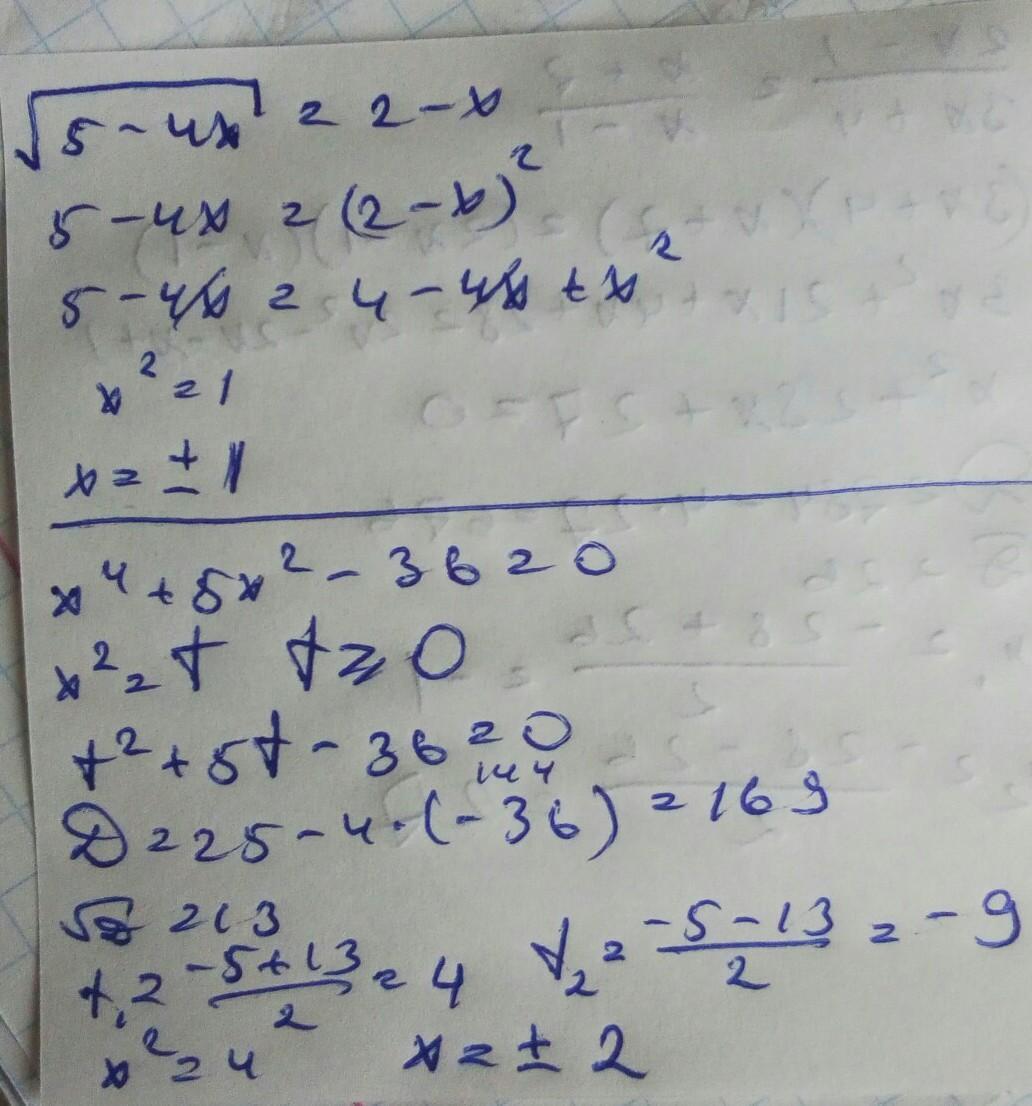 √(5 - 4x) = 2 - x
5 - 4x = (2 - x)²
5 - 4x = 4 - 4x + x²
x² = 1
x = ± 1
x⁴ + 5x² - 36 = 0
x² = t t ≥ 0
t² + 5t - 36 = 0
144
D = 25 - 4 · (-36) = 169
√D = 13
t₁ = (-5 + 13)/2 = 4 t₂ = (-5 - 13)/2 = -9
x² = 4 x = ± 2